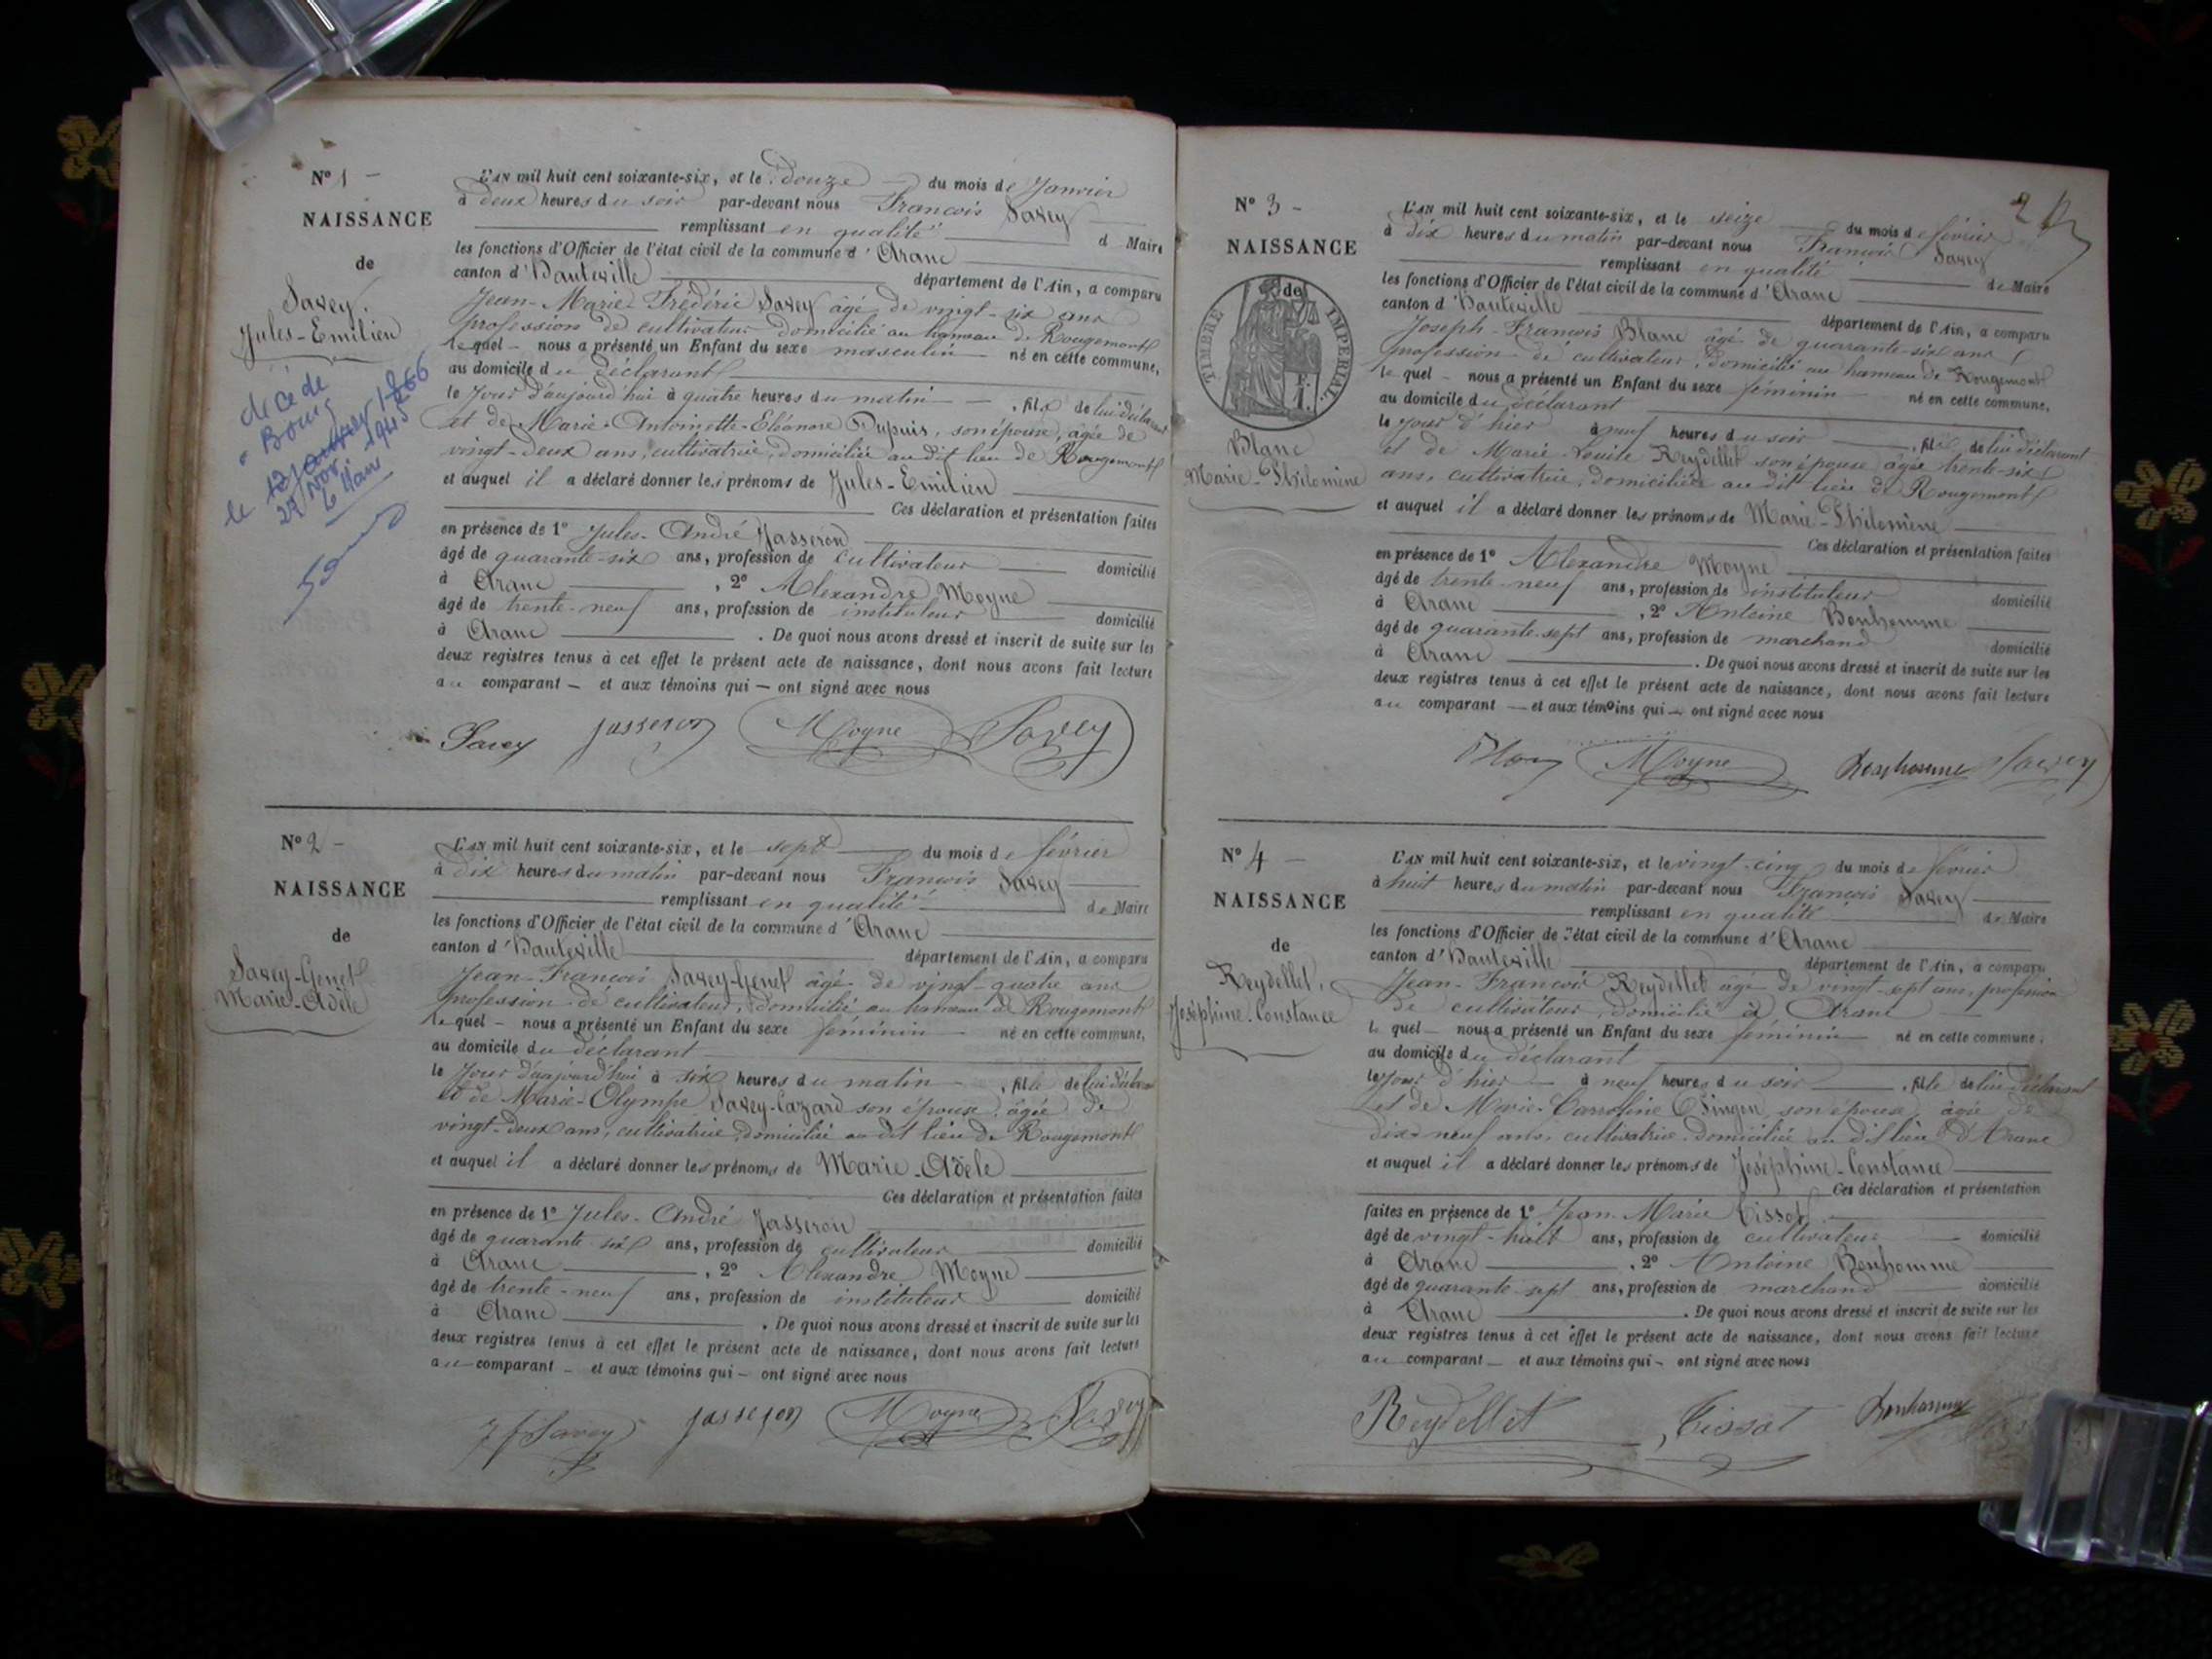 N° 1 -
NAISSANCE
de
Savey,
Jules-Emilien
décédé
a Bourg
le
27 Nov. 1945
L'AN mil huit cent soixante-six, et le douze du mois de Janvier
à deux heures du soir par-devant nous François Savey
remplissant en qualité d Maire
les fonctions d'Officier de l'état civil de la commune d'Aranc
canton d'Hauteville département de l'Ain, a comparu
Jean-Marie Frédéric Savey âgé de vingt-six ans
profession de cultivateur domicilié au hameau de Rougemont
lequel - nous a présenté un Enfant du sexe masculin né en cette commune,
au domicile du déclarant
le Jour d'aujourd'hui à quatre heures du matin - , fils de lui déclarant
et de Marie-Antoinette-Eléonore Dupuis, son épouse, âgée de
vingt-deux ans, cultivatrice, domiciliée au dit lieu de Rougemont
et auquel il a déclaré donner les prénoms de Jules-Emilien
Ces déclaration et présentation faites
en présence de 1° Jules-André Jasseron
âgé de quarante-six ans, profession de cultivateur domicilié
à Aranc , 2° Alexandre Moyne
âgé de trente-neuf ans, profession de instituteur domicilié
à Aranc . De quoi nous avons dressé et inscrit de suite sur les
deux registres tenus à cet effet le présent acte de naissance, dont nous avons fait lecture
au comparant - et aux témoins qui - ont signé avec nous
Savey Jasseron Moyne Savey
N° 2 -
NAISSANCE
de
Savey-Genet
Marie-Adèle
L'AN mil huit cent soixante-six, et le sept du mois de février
à dix heures du matin par-devant nous François Savey
remplissant en qualité de Maire
les fonctions d'Officier de l'état civil de la commune d'Aranc
canton d'Hauteville département de l'Ain, a comparu
Jean-François Savey-Genet âgé de vingt-quatre ans
profession de cultivateur, domicilié au hameau de Rougemont
lequel - nous a présenté un Enfant du sexe féminin né en cette commune,
au domicile du déclarant
le Jour d'aujourd'hui à six heures du matin - , fille de lui déclarant
et de Marie-Olympe Savey-Cazard son épouse, âgée de
vingt-deux ans, cultivatrice, domiciliée au dit lieu de Rougemont
et auquel il a déclaré donner les prénoms de Marie-Adèle
Ces déclaration et présentation faites
en présence de 1° Jules-André Jasseron
âgé de quarante-six ans, profession de cultivateur domicilié
à Aranc , 2° Alexandre Moyne
âgé de trente-neuf ans, profession de instituteur domicilié
à Aranc . De quoi nous avons dressé et inscrit de suite sur les
deux registres tenus à cet effet le présent acte de naissance, dont nous avons fait lecture
au comparant - et aux témoins qui - ont signé avec nous
J f Savey Jasseron Moyne Savey
2
N° 3 -
NAISSANCE
de
TIMBRE IMPERIAL
Blanc
Marie-Philomène
L'AN mil huit cent soixante-six, et le seize du mois de février
à dix heures du matin par-devant nous François Savey
remplissant en qualité de Maire
les fonctions d'Officier de l'état civil de la commune d'Aranc
canton d'Hauteville département de l'Ain, a comparu
Joseph-François Blanc âgé de quarante-six ans
profession de cultivateur, domicilié au hameau de Rougemont
lequel - nous a présenté un Enfant du sexe féminin né en cette commune,
au domicile du déclarant
le Jour d'hier à neuf heures du soir , fille de lui déclarant
et de Marie-Louise Reydellet son épouse âgée trente-six
ans, cultivatrice, domiciliée au dit lieu de Rougemont
et auquel il a déclaré donner les prénoms de Marie-Philomène
Ces déclaration et présentation faites
en présence de 1° Alexandre Moyne
âgé de trente-neuf ans, profession de instituteur domicilié
à Aranc , 2° Antoine Bonhomme
âgé de quarante-sept ans, profession de marchand domicilié
à Aranc . De quoi nous avons dressé et inscrit de suite sur les
deux registres tenus à cet effet le présent acte de naissance, dont nous avons fait lecture
au comparant - et aux témoins qui - ont signé avec nous
Moyne Bonhomme Savey
N° 4 -
NAISSANCE
de
Reydellet,
Joséphine-Constance
L'AN mil huit cent soixante-six, et le vingt-cinq du mois de février
à huit heures du matin par-devant nous François Savey
remplissant en qualité de Maire
les fonctions d'Officier de l'état civil de la commune d'Aranc
canton d'Hauteville département de l'Ain, a comparu
Jean-François Reydellet âgé de vingt-sept ans, profession
de cultivateur, domicilié à Aranc
lequel - nous a présenté un Enfant du sexe féminin né en cette commune,
au domicile du déclarant
le Jour d'hier à neuf heures du soir , fille de lui déclarant
et de Marie-Carroline son épouse, âgée de
dix-neuf ans, cultivatrice, domiciliée au dit lieu d'Aranc
et auquel il a déclaré donner les prénoms de Joséphine-Constance
Ces déclaration et présentation
faites en présence de 1° Jean-Marie Tissot
âgé de vingt-huit ans, profession de cultivateur domicilié
à Aranc , 2° Antoine Bonhomme
âgé de quarante-sept ans, profession de marchand domicilié
à Aranc . De quoi nous avons dressé et inscrit de suite sur les
deux registres tenus à cet effet le présent acte de naissance, dont nous avons fait lecture
au comparant - et aux témoins qui - ont signé avec nous
Reydellet Tissot Bonhomme